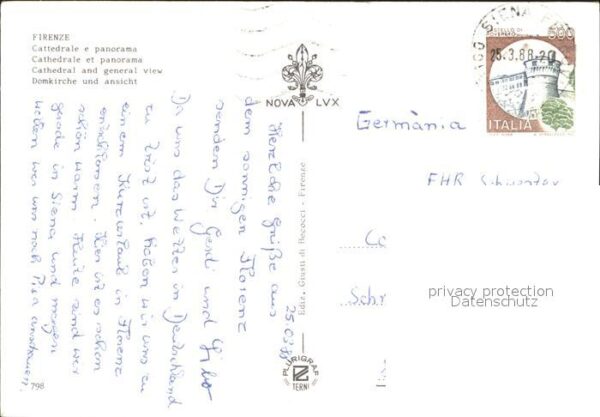 FIRENZE
Cattedrale e panorama
Cathédrale et panorama
Cathedral and general view
Domkirche und ansicht
NOVA LVX
SIENA
25.3.88
500
ITALIA
Germania
FHR
Co
Schr
privacy protection
Datenschutz
Ediz. Giusti di Becocci - Firenze
PLURIGRAF
TERNI
798
25.03.88
Herzliche Grüße aus
dem sonnigen Florenz
senden Dir Gerdi und
Da uns das Wetter in Deutschland
zu trist ist, haben wir uns zu
einem Kurzurlaub in Florenz
entschlossen. Hier ist es schon
schön warm. Heute sind wir
gerade in Siena und morgen
wollen wir uns noch Pisa anschauen.